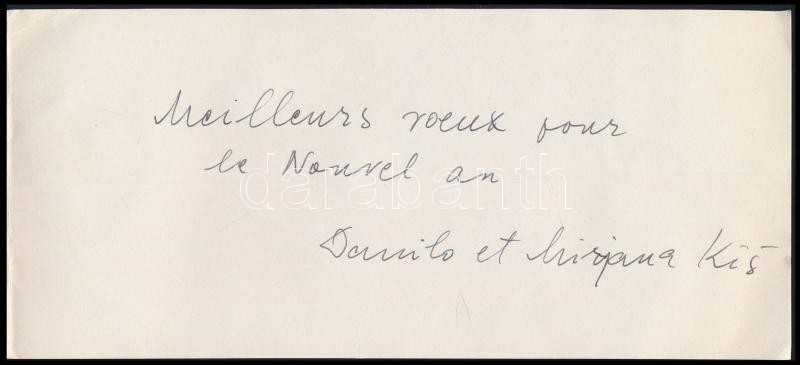 Meilleurs vœux pour
le Nouvel an
darabanth
Danilo et Mirjana Kiš